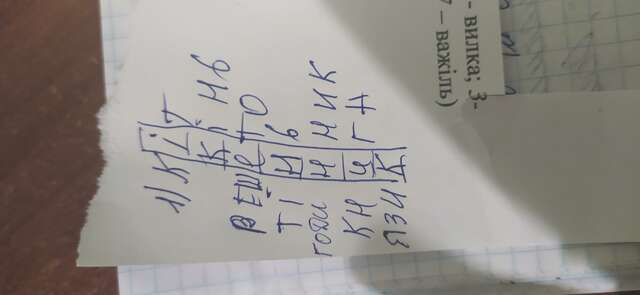 - вилка; 3-
7 – важіль)
1) КІТ
КІНЬ
РЕШЕТО
ТІНЬ
ГОДИННИК
КНИГА
ЯЗИК